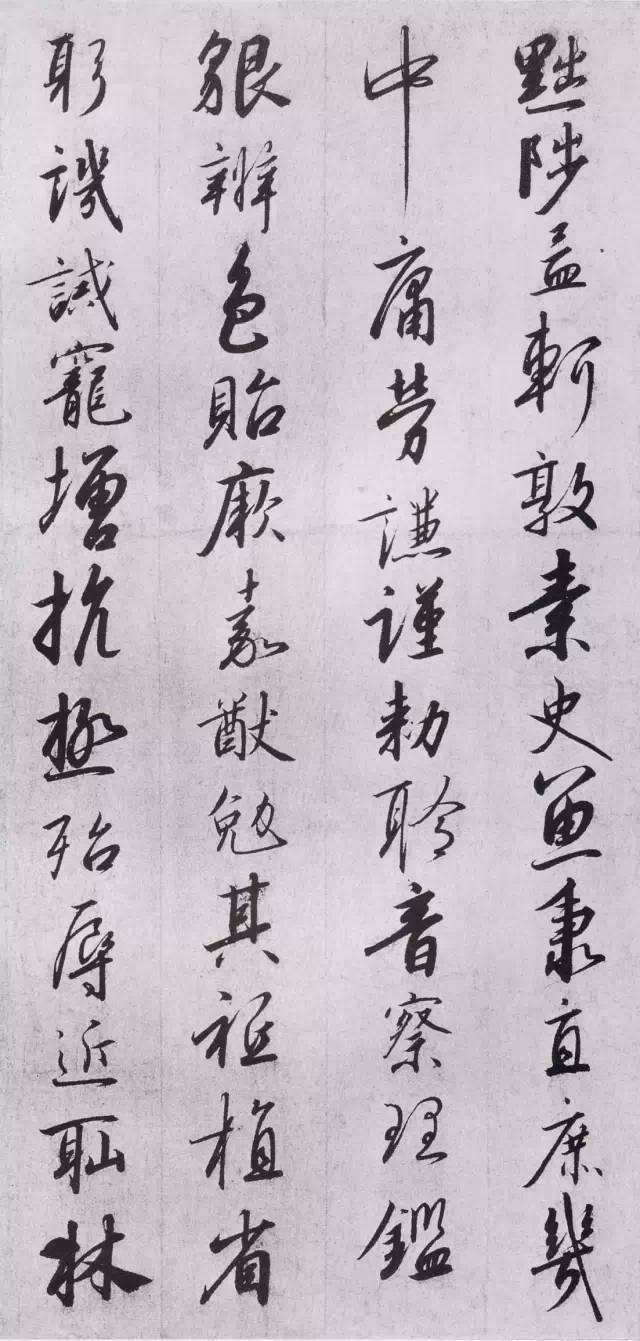 黜陟孟軻敦素史魚秉直庶幾
中庸勞謙謹勅聆音察理鑑
貌辨色貽厥嘉猷勉其祗植省
躬譏誡寵增抗極殆辱近耻林